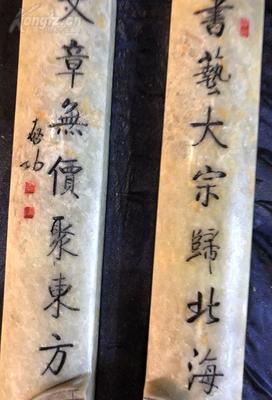 書藝大宗歸北海
文章無價聚東方
啟功
Kongfz.cn